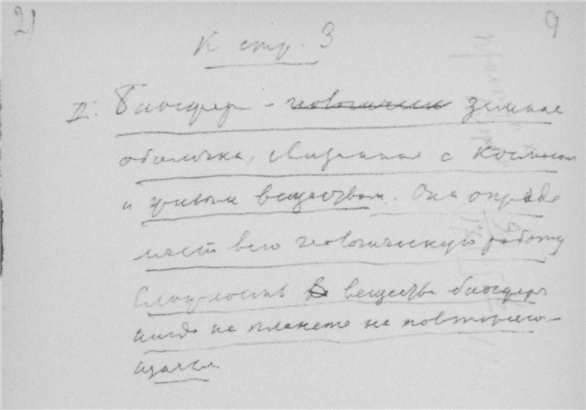 2) 9
К стр. 3
II. Биосфера – геологическая земная
оболочка, связанная с космосом
и живым веществом. Она опреде
ляет всю геологическую работу
Сложность в вещества биосферы
нигде на планете не повторяю-
щаяся.